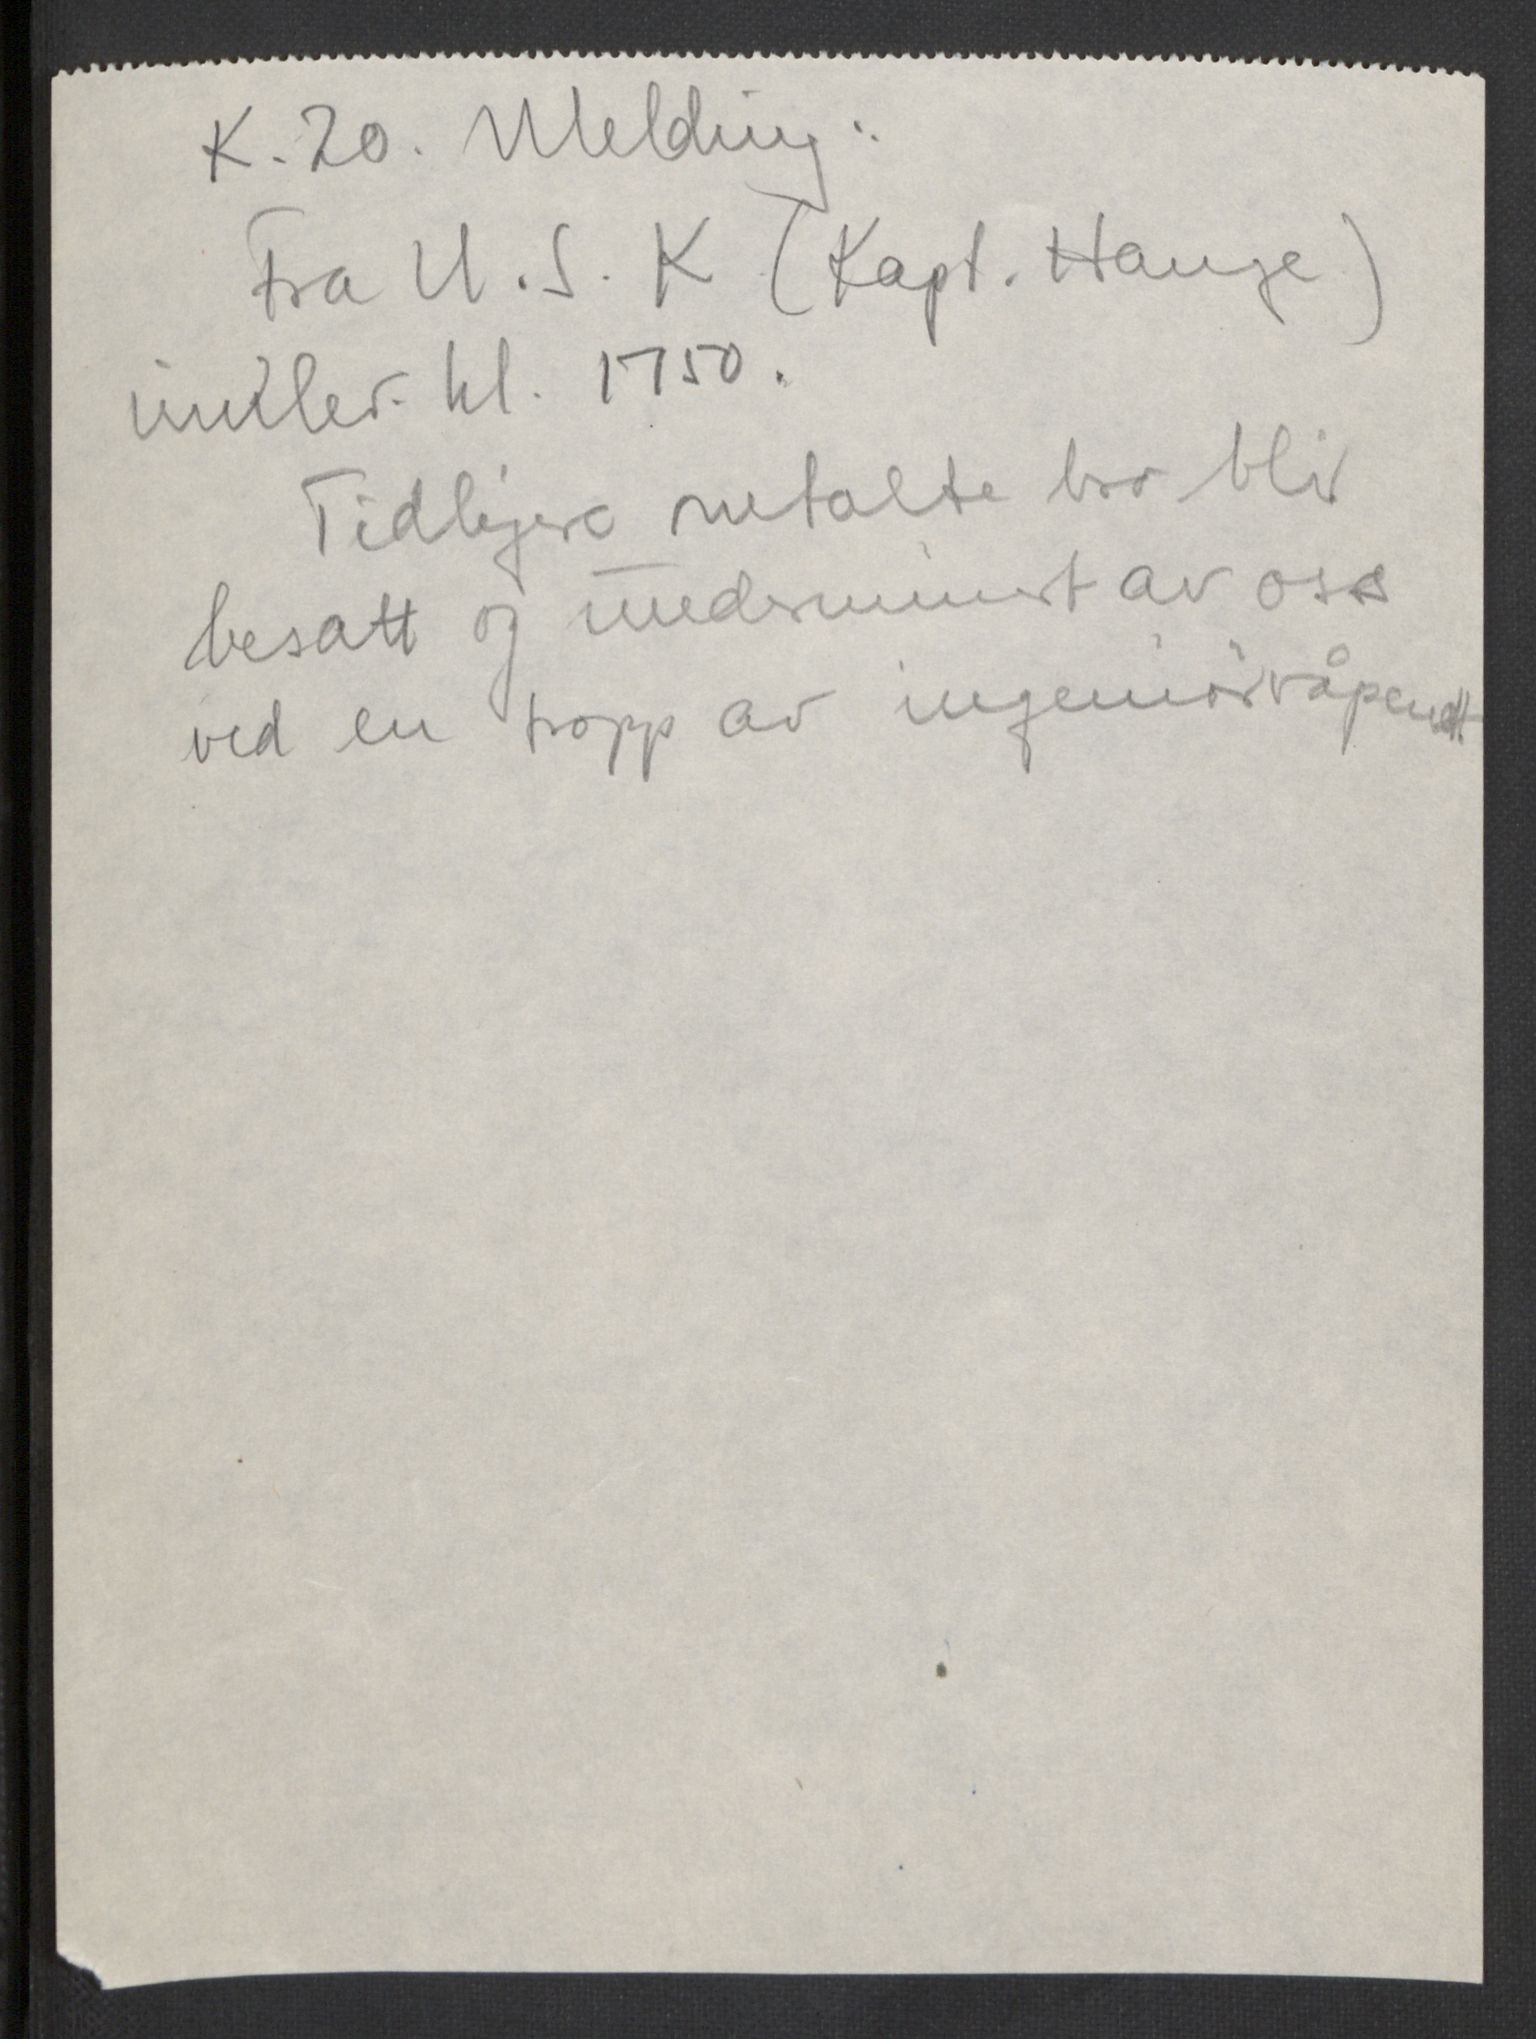 K. 20. Melding:
Fra U.S.K (Kapt. Hauge)
innlev. kl. 1750.
Tidligere metalte bro blir
besatt og underminert av oss
ved en tropp av ingeniörvåpenet.